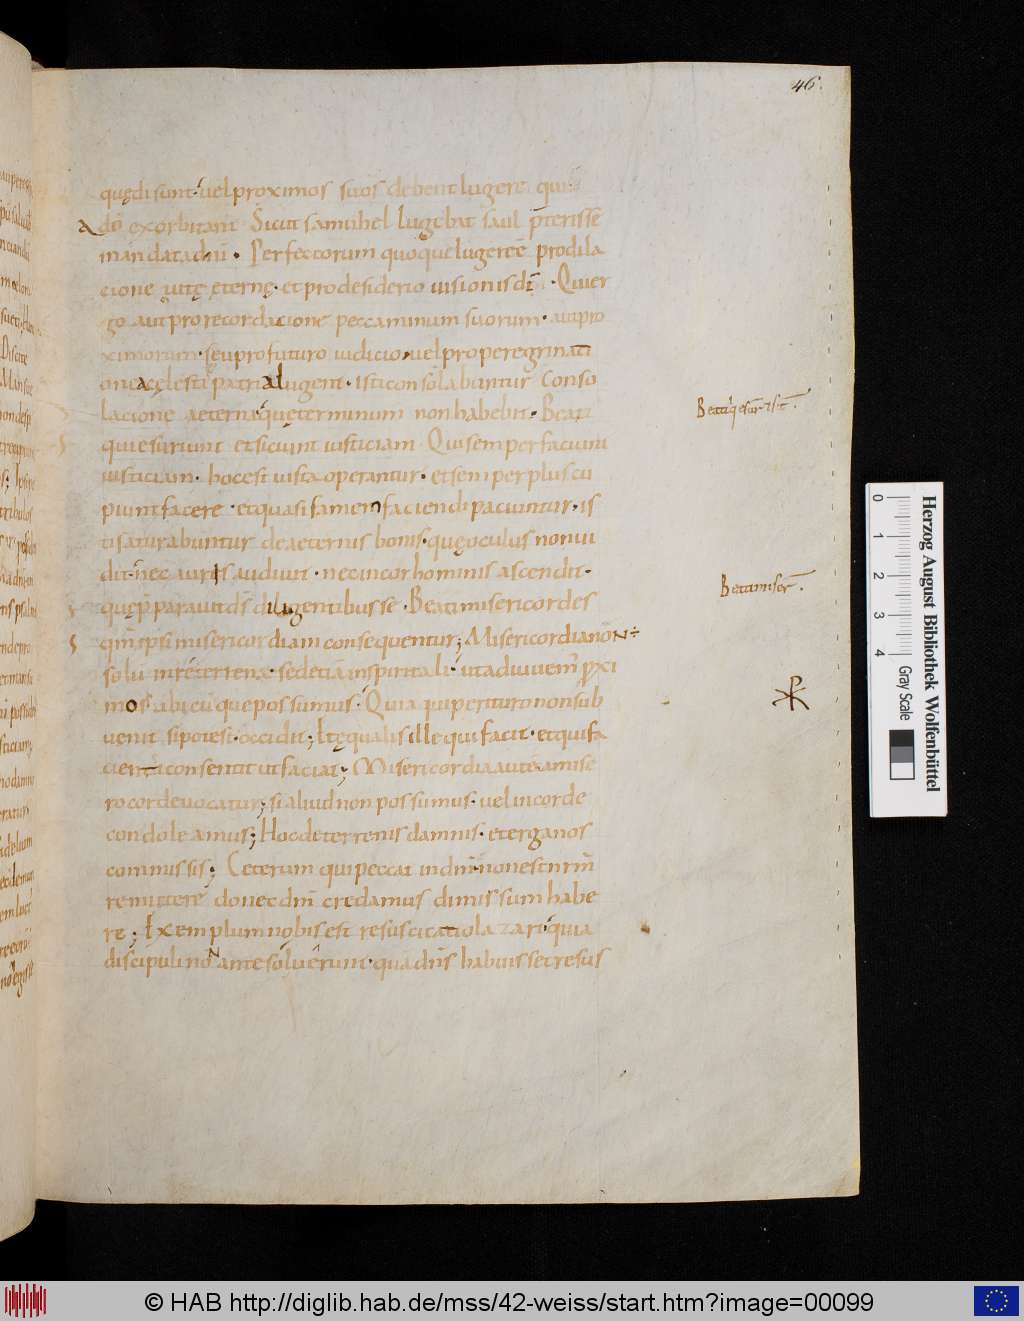 46.
quędi sunt. uel proximos suos debent lugere. qui
A dō exorbitant Sicut samuhel lugebat saul p̄terisse
mandata dn̄i. Perfectorum quoque lugere ē pro dila
cione uitę ęternę. et pro desiderio uisionis dī. Qui er
go aut pro recordacione peccaminum suorum. aut pro
ximorum. seu pro futuro iudicio. uel pro peregrinati
oni a cęlesti patria lugent. isti consolabuntur Conso
lacione aeterna quę terminum non habebit. Beati
Beati q esur & sit.
qui esuriunt et siciunt iusticiam. Qui semper faciunt
iusticiam. hoc est iusta operantur. et semper plus cu
piunt facere. et quasi famem faciendi paciuntur. is
ti saturabuntur de aeternis bonis. quę oculus non ui
dit. nec auris audiuit. nec in cor hominis ascendit.
quę p̄parauit ds̄ diligentibus se. Beati misericordes
Beati miser.
qm̄ ipsi misericordiam consequentur; Misericordia non ÷
solū in re terrena. sed etiā in spiritali. ut adiuuem̄ proxi
mos. ubicūque possumus. Quia qui perituro non sub
uenit si potest. occidit; Itę qualis ille qui facit. et qui fa
cienti consentit ut faciat; Misericordia autē a mise
ro corde uocatur; si aliud non possumus. uel in corde
condoleamus; Hoc de terrenis damnis. et erga nos
commissis; Ceterum qui peccat in dn̄m non est nrm̄
remittere donec dn̄m credamus dimissum habe
re; Exemplum nobis est resuscitatio lazari. quia
discipuli nō ante soluerunt. quā dn̄s habuisset resus
0 1 2 3 4
Herzog August Bibliothek Wolfenbüttel
Gray Scale
© HAB http://diglib.hab.de/mss/42-weiss/start.htm?image=00099